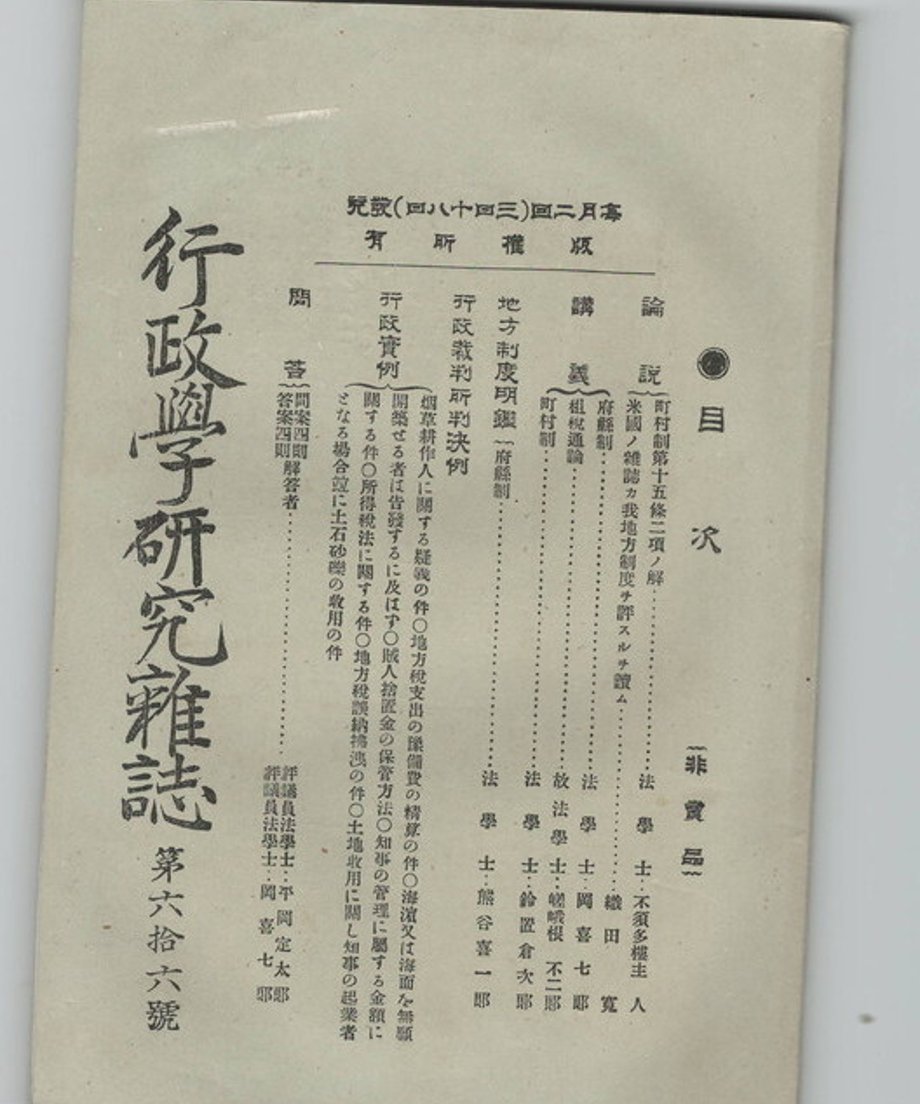 毎月二回(三回十八回)發兌
版權所有
目次
非賣品
論說
町村制第十五條二項ノ解……法學士…不須多樓主人
米國ノ雜誌カ我地方制度ヲ評スルヲ讀ム……織田寬
講義
府縣制……法學士…岡喜七郎
租稅通論……故法學士…嵯峨根不二郎
町村制……法學士…鈴置倉次郎
地方制度明鑑
府縣制……法學士…熊谷喜一郎
行政裁判所判決例
行政實例
烟草耕作人に關する疑義の件〇地方稅支出の豫備費の精算の件〇海濱又は海面を無願
開築せる者は告發するに及はす〇賊人捨置金の保管方法〇知事の管理に屬する金額に
關する件〇所得稅法に關する件〇地方稅誤納拂洩の件〇土地收用に關し知事の起業者
となる場合並に土石砂礫の收用の件
問答
問案四則解答者……評議員法學士…平岡定太郎
答案四則 評議員法學士…岡喜七郎
行政學研究雜誌 第六拾六號